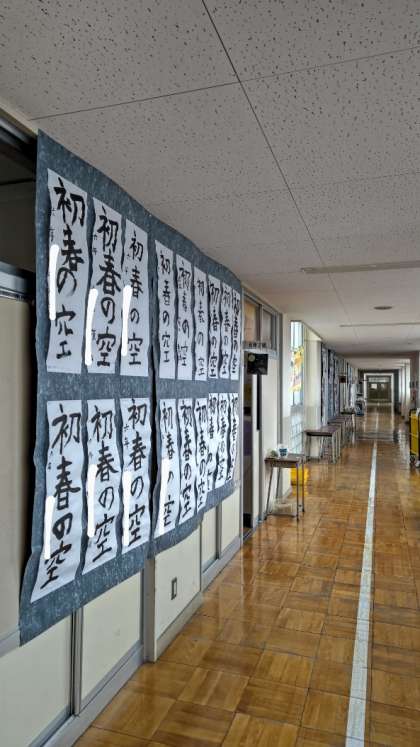 初春の空
初春の空
初春の空
初春の空
初春の空
初春の空
初春の空
初春の空
初春の空
初春の空
初春の空
初春の空
初春の空
初春の空
初春の空
初春の空
初春の空
初春の空